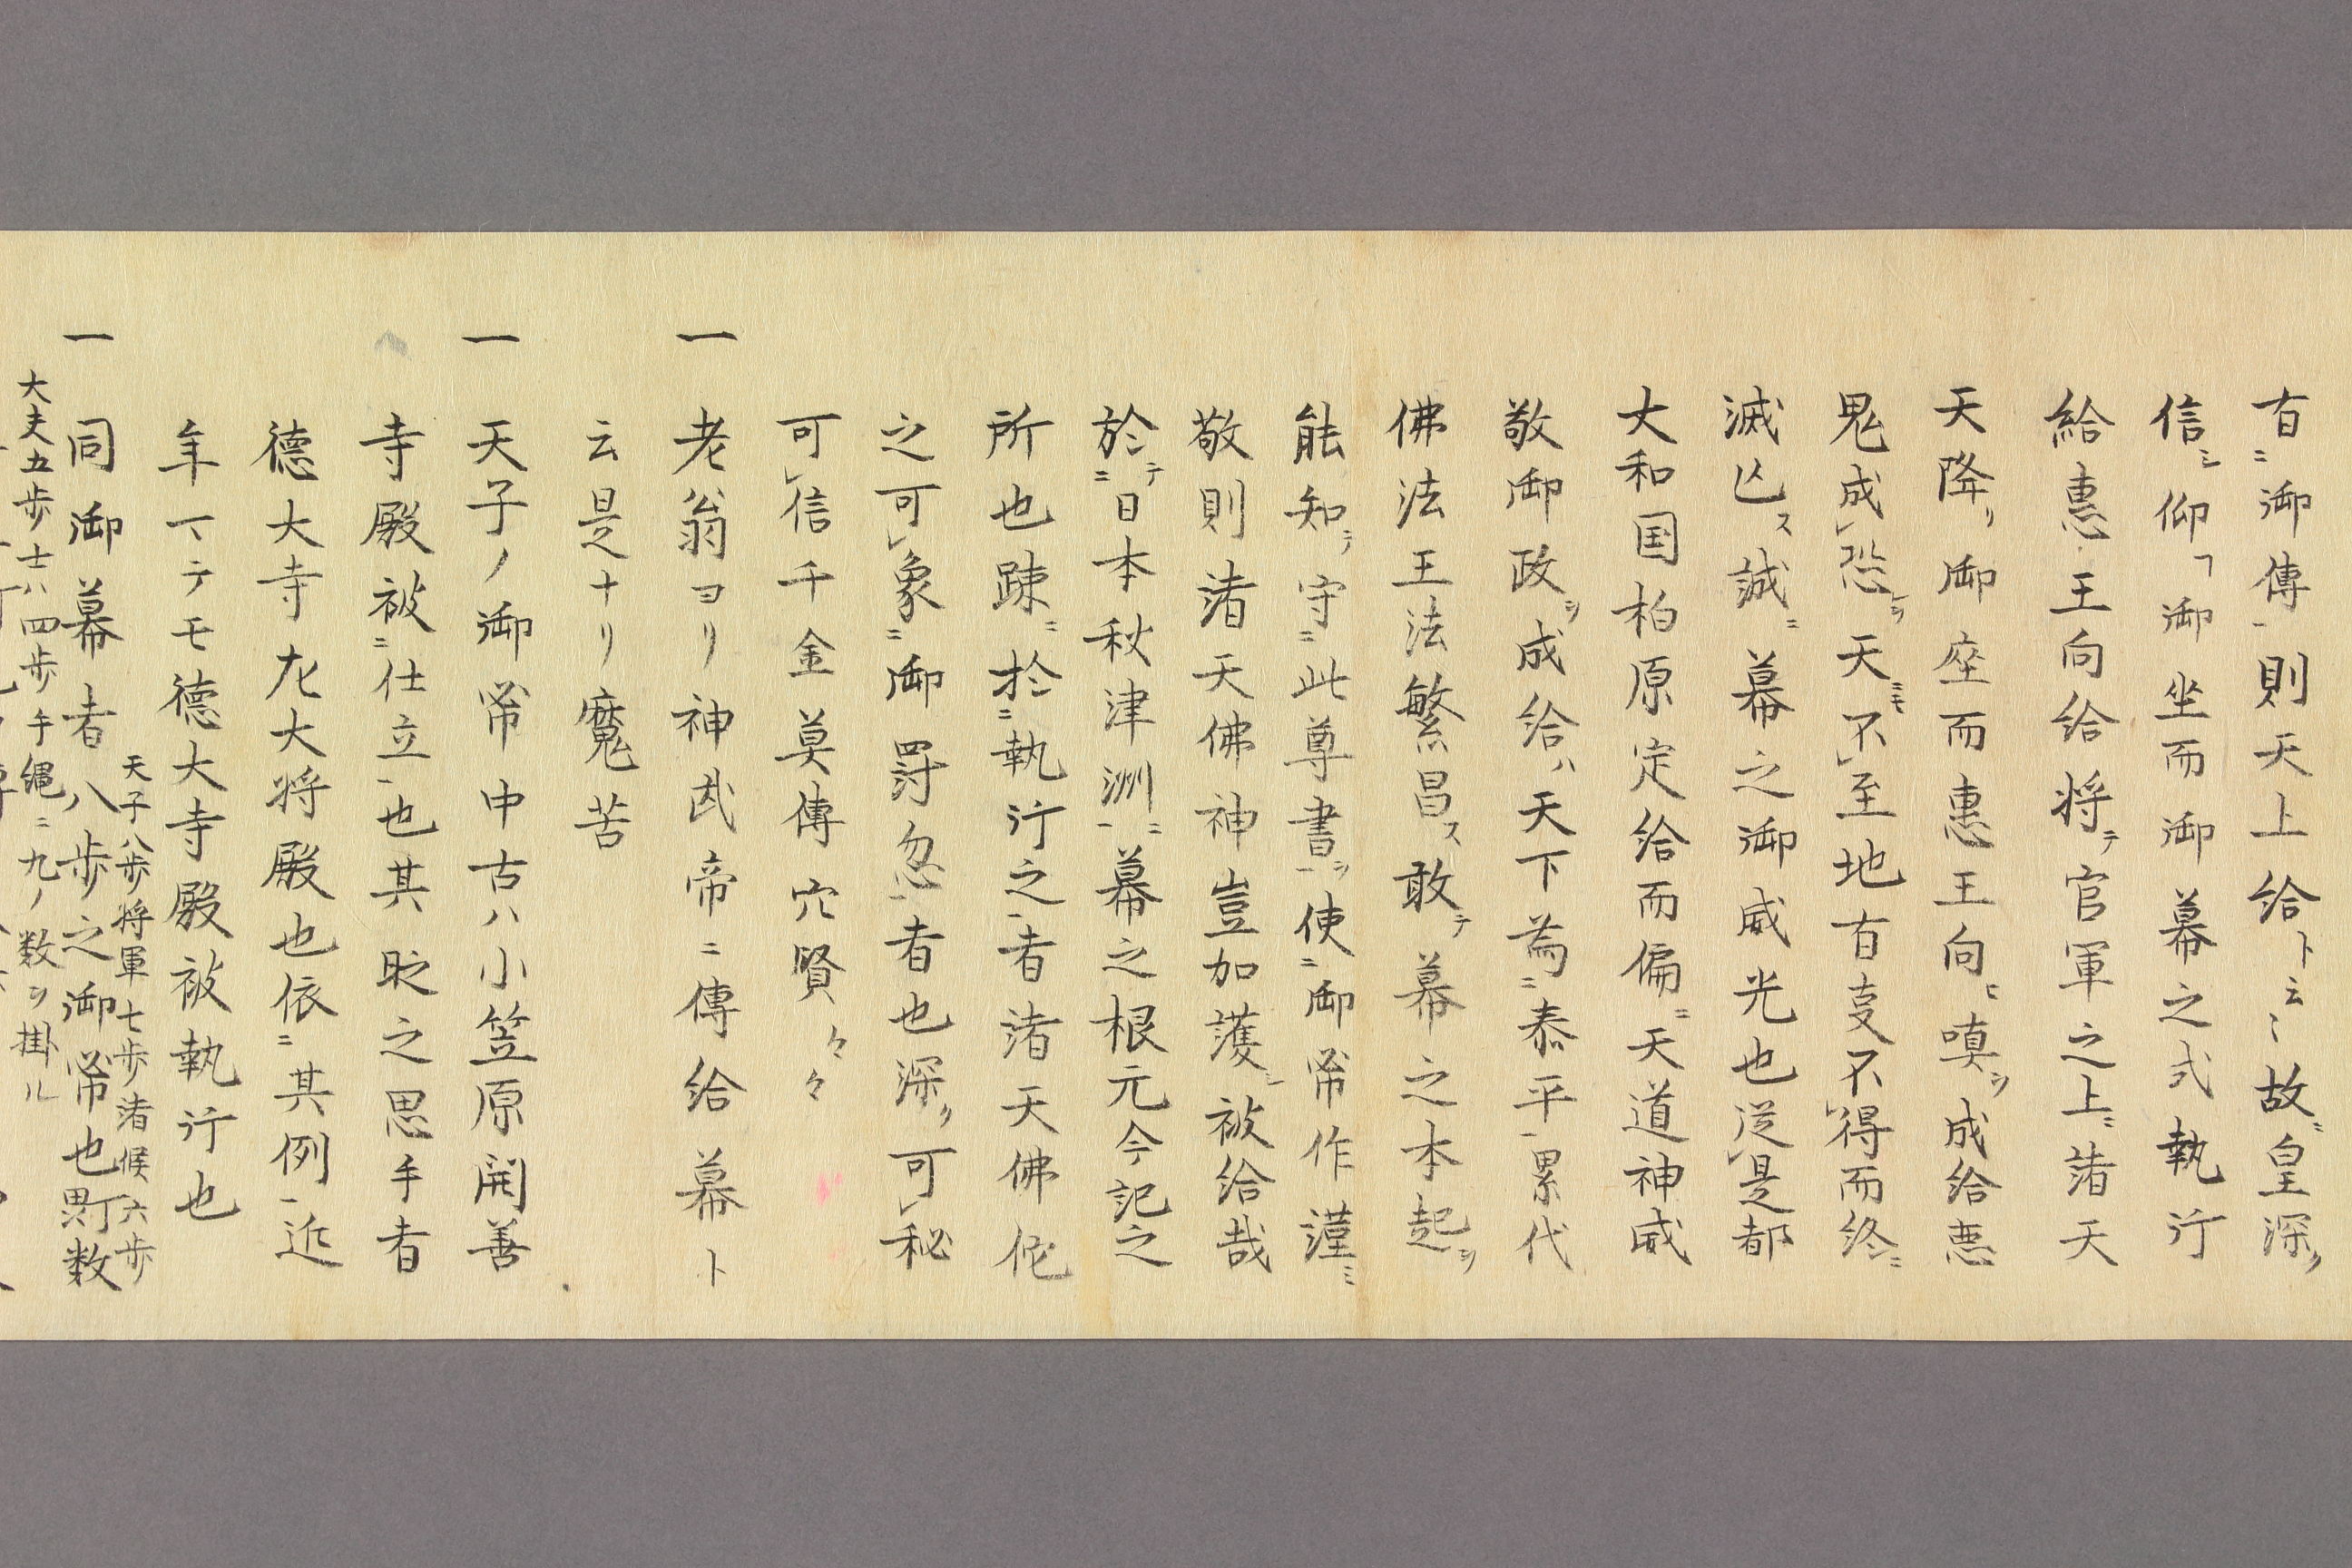 有ニ御傳一則天上給ト云〻故ニ皇深ク
信シ仰フ御坐而御幕之式執行
給悪王向給将テ官軍之上ニ諸天
天降リ御座而悪王向ヒ嗔ヲ成給悪
鬼成レ恐ヲ天ニモ不レ至地有叓不レ得而終ニ
滅亡ス誠ニ幕之御威光也従レ是都
大和国柏原定給而偏ニ天道神威
敬御政ヲ成給ハ天下為ニ泰平一累代
佛法王法繁昌ス敢テ幕之本起ヲ
能知テ守ニ此尊書一ヲ使ニ御幕作謹ミ
敬則諸天佛神豈加護ヲ被給哉
於ニテ日本秋津洲一ニ幕之根元今記之
所也踈ニ於ニ執行之一者諸天佛侘
之可レ象ニ御罸忽一者也深ク可レ秘
可レ信千金莫傳穴賢々々
一 老翁ヨリ神武帝ニ傳給幕ト
云是ナリ魔苦
一 天子ノ御幕中古ハ小笠原開善
寺殿被ニ仕立一也其昵之思手者
徳大寺左大将殿也依ニ其例一近
年マテモ徳大寺殿被執行也
一 同御幕者八歩之御幕也異町数
天子八歩将軍七歩諸候六歩
大夫五歩士ハ四歩手縄ニ九ノ数ヲ掛ル